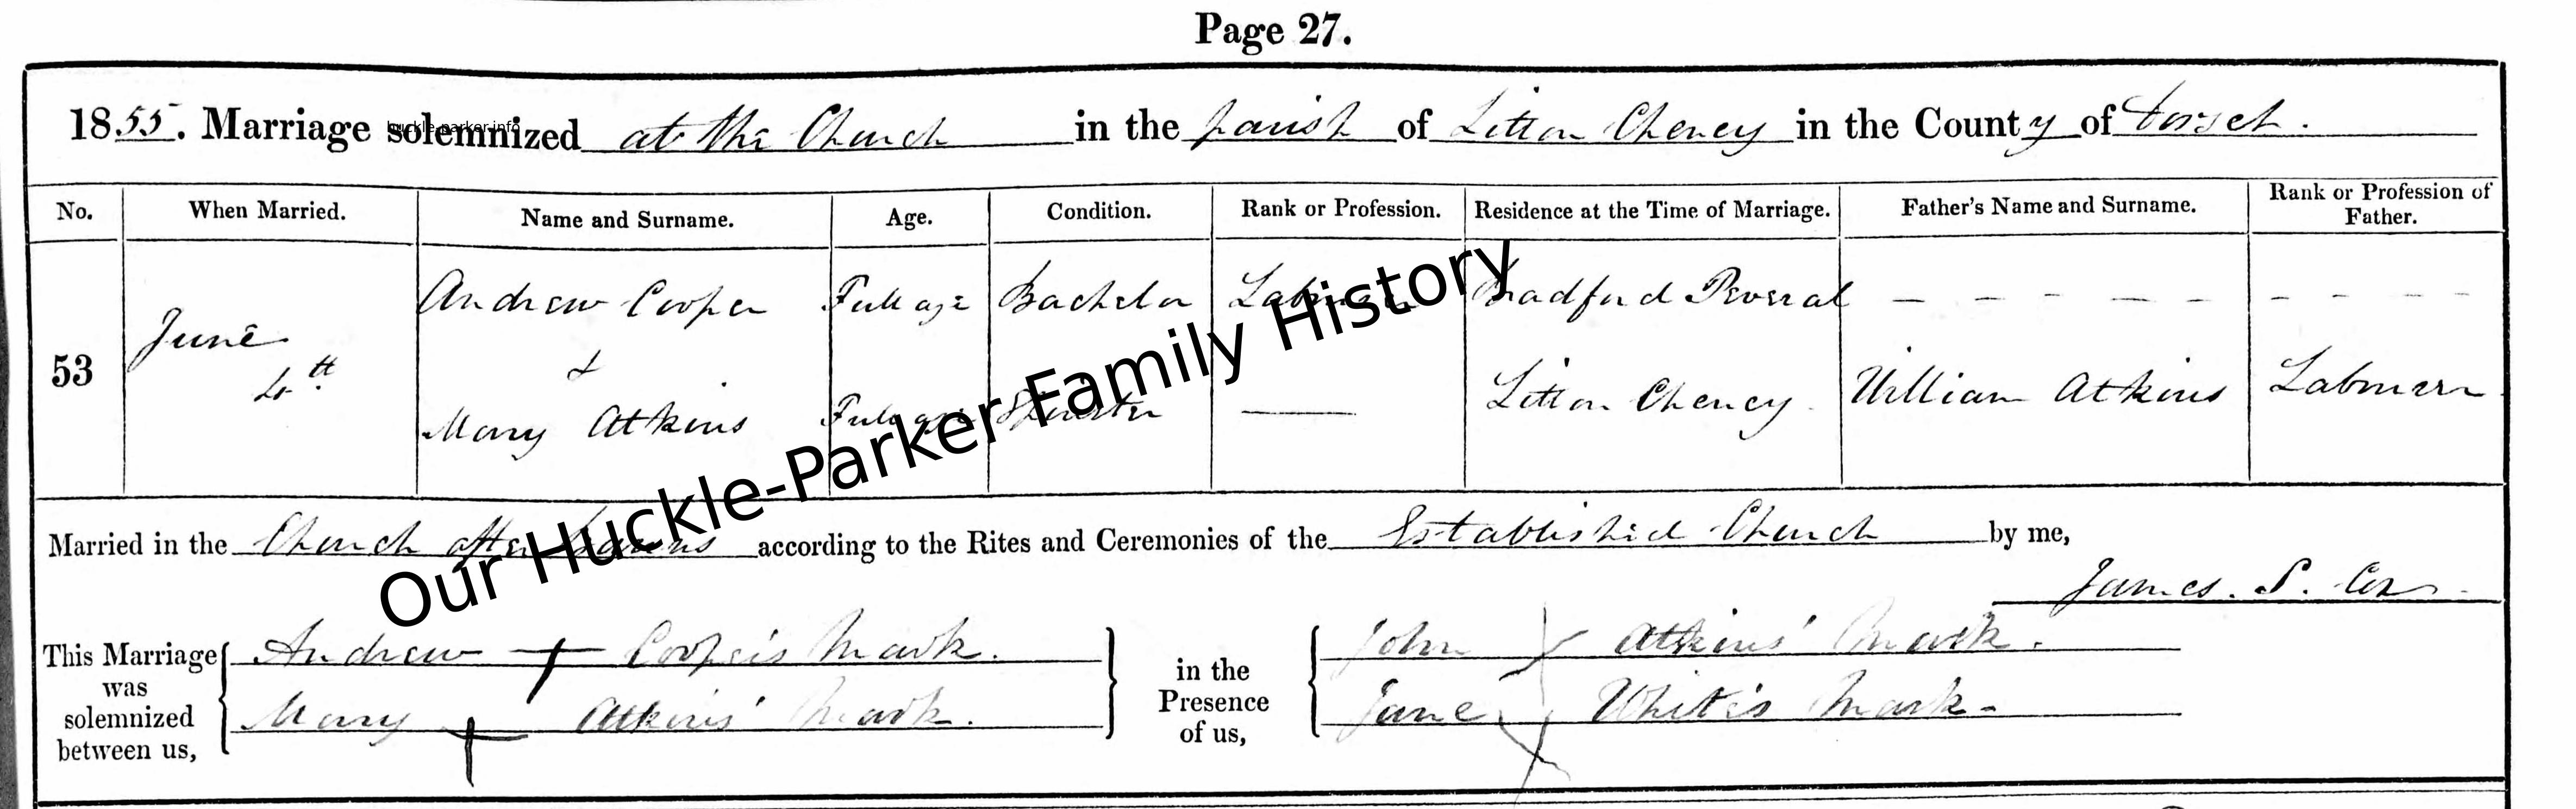 Page 27.
1855. Marriage solemnized at the Church in the parish of Litton Cheney in the County of Dorset.
huckle-parker.info
No. When Married. Name and Surname. Age. Condition. Rank or Profession. Residence at the Time of Marriage. Father's Name and Surname. Rank or Profession of Father.
Andrew Cooper Full age Bachelor Labourer Bradford Peveral — — — — — — — — —
53 June 4th &
Mary Atkins Full age Spinster — Litton Cheney. William Atkins Labourer
Our Huckle-Parker Family History
Married in the Church after Banns according to the Rites and Ceremonies of the Established Church by me,
James. S. Cox.
This Marriage was solemnized between us,
Andrew + Cooper's Mark.
Mary + Atkins' Mark.
in the Presence of us,
John X Atkins' Mark.
Jane X White's Mark.